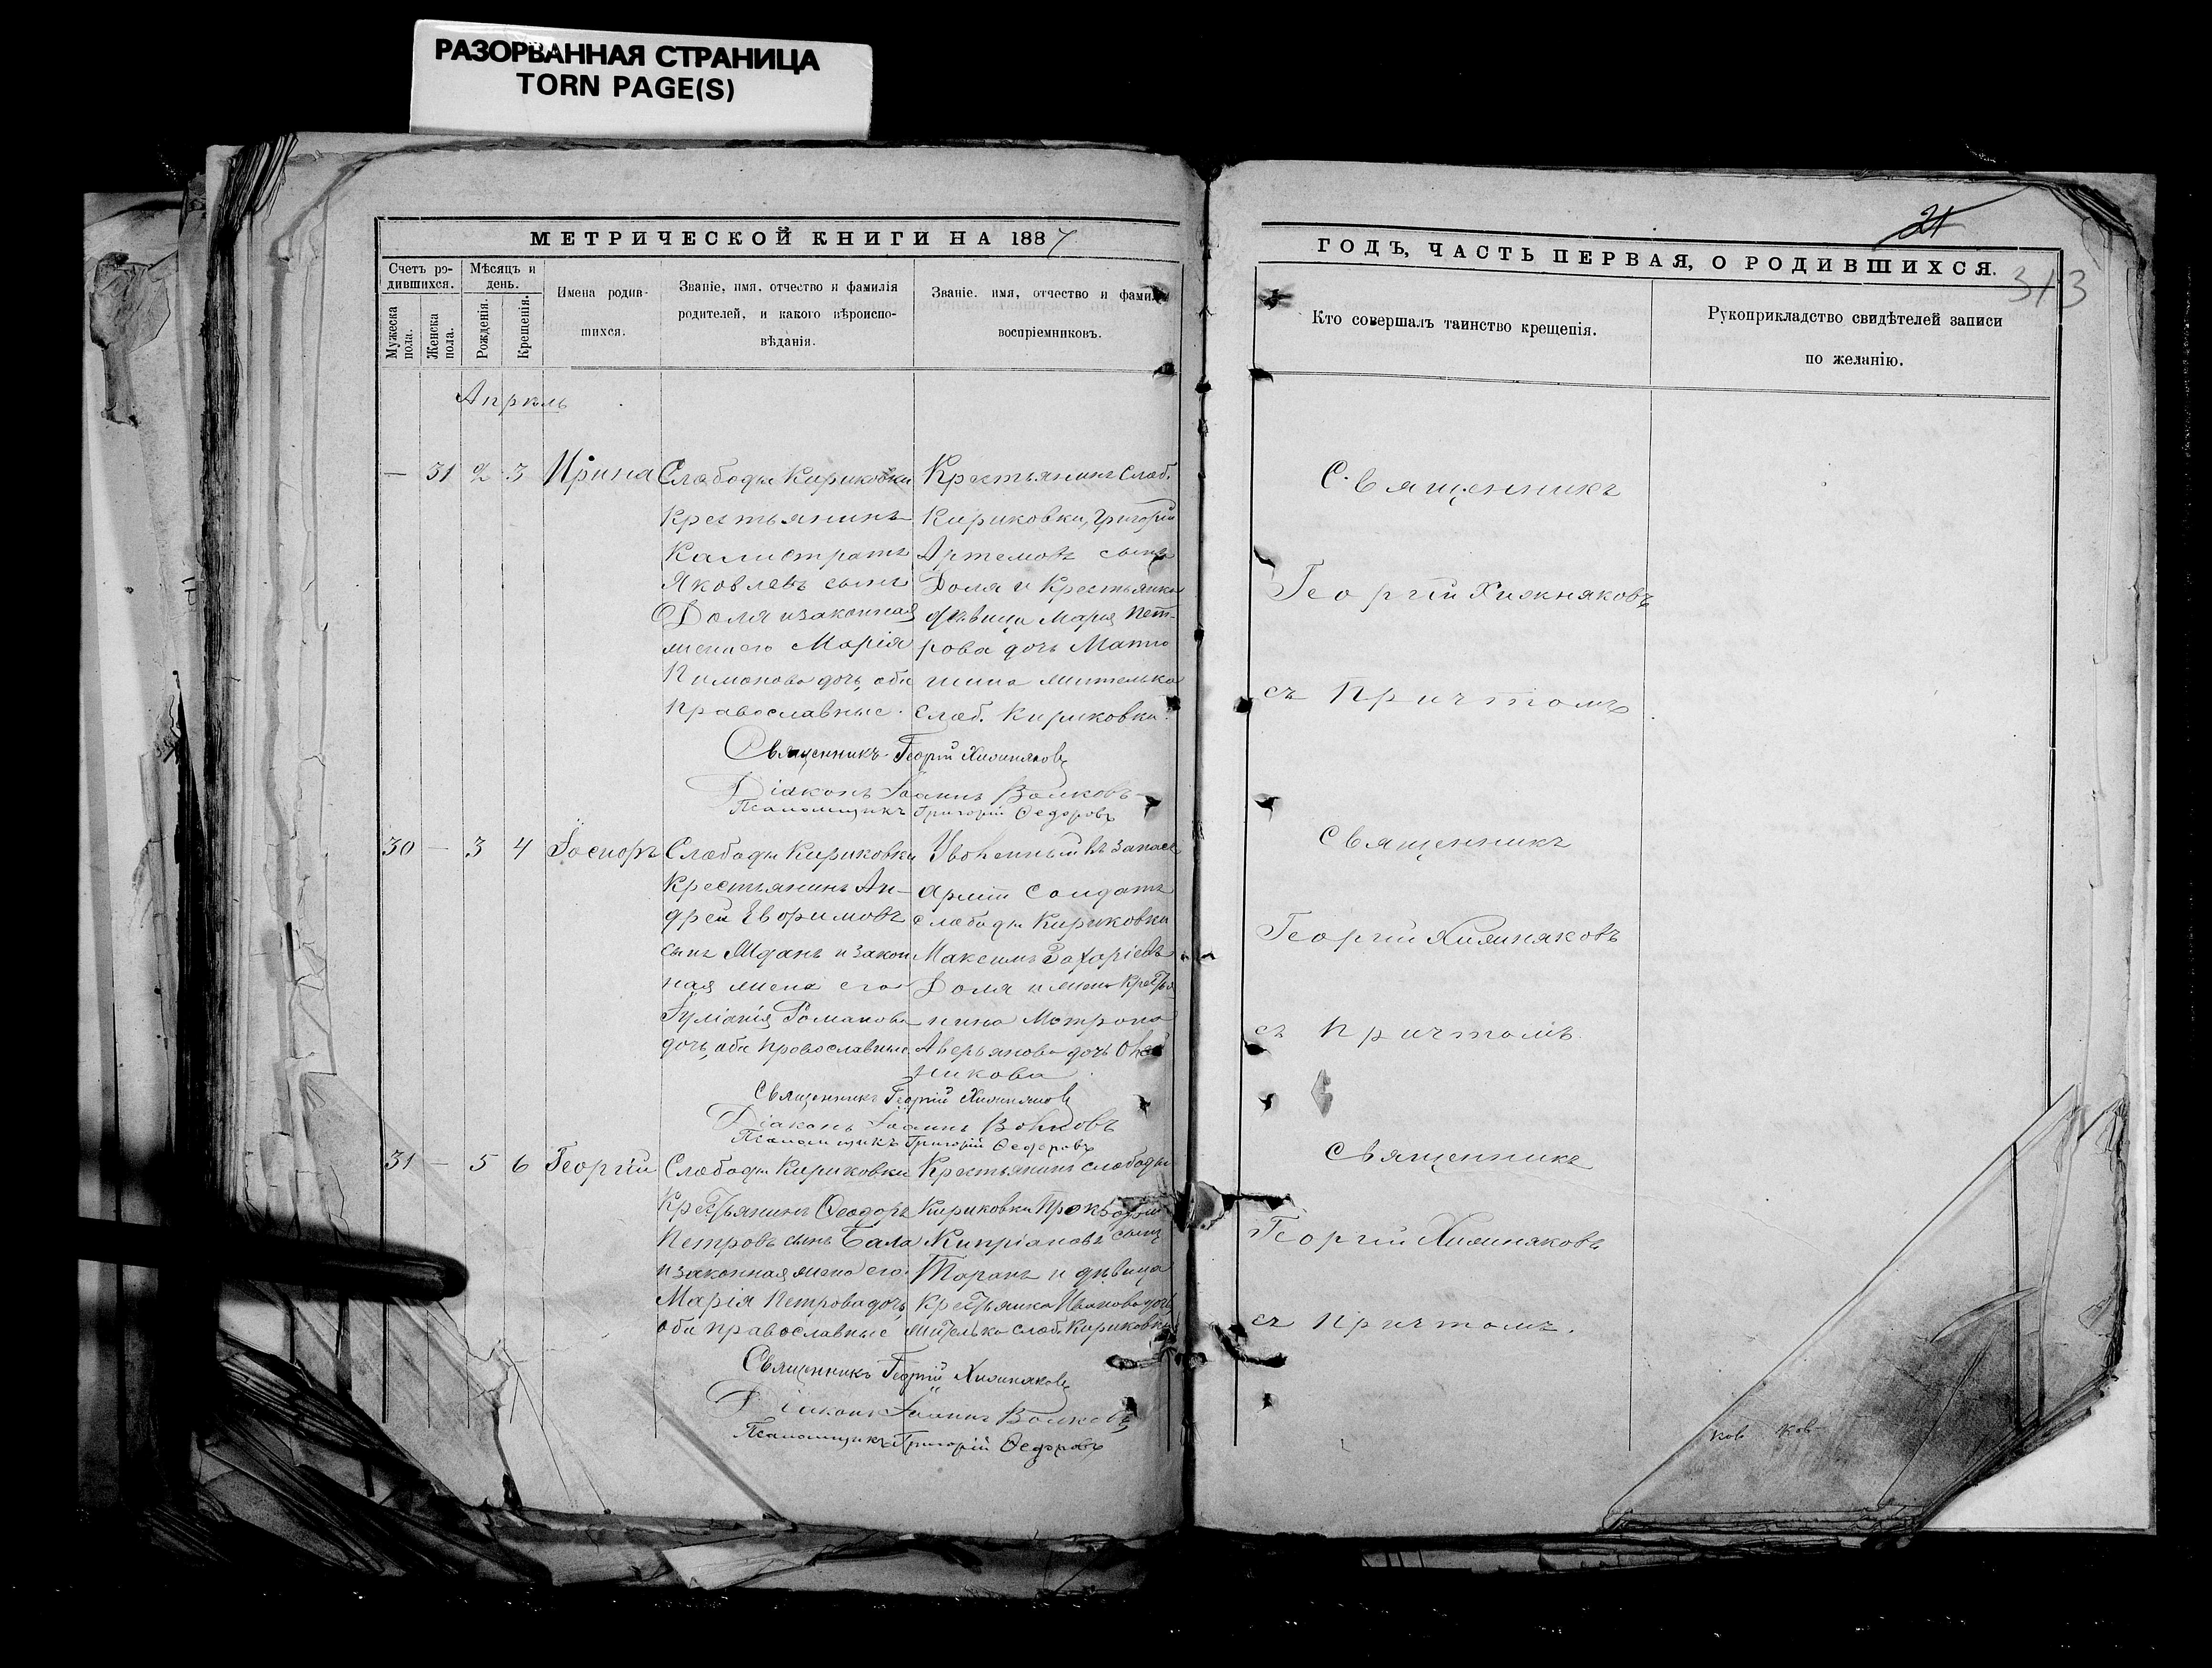 РАЗОРВАННАЯ СТРАНИЦА
TORN PAGE(S)
МЕТРИЧЕСКОЙ КНИГИ НА 1887
Счетъ ро-
дившихся.
Мѣсяцъ и
день.
Мужеска
пола.
Женска
пола.
Рожденія.
Крещенія.
Имена родив-
шихся.
Званіе, имя, отчество и фамилія
родителей, и какого вѣроиспо-
вѣданія.
Званіе, имя, отчество и фамил
воспріемниковъ.
Апрель
— 31 2 3 Ирина
Слободы Кириковки
Крестьянинъ
Калистратъ
Яковлевъ сынъ
Доля и законная
жена его Марія
Пимонова дочь, оба
православные.
Крестьянинъ слоб.
Кириковки, Григорій
Артемовъ сынъ
Доля и Крестьянка
дѣвица Марія Пет-
рова дочь
слоб. Кириковки.
Священникъ Георгій Хижняковъ
Діаконъ Іоаннъ Волковъ
Псаломщикъ Григорій Ѳедоровъ
30 — 3 4 Іосифъ
Слободы Кириковки
Крестьянинъ Ан-
дрей
сынъ Жданъ и закон
ная жена его
Романова
дочь, оба православные
Уволенный въ запасъ
арміи Солдатъ
слободы Кириковки
Максимъ Захаріевъ
Доля и жена Крестья
нина
Аверьянова дочь
никова
Священникъ Георгій Хижняковъ
Діаконъ Іоаннъ Волковъ
Псаломщикъ Григорій Ѳедоровъ
31 — 5 6 Георгій
Слободы Кириковки
Крестьянинъ Ѳеодоръ
Петровъ сынъ Бала
и законная жена его
Марія Петрова дочь,
оба православные
Крестьянинъ слободы
Кириковки Прокофій
Кипріановъ сынъ
Таранъ и дѣвица
Крестьянка Иванова дочь
Мителько слоб. Кириковки
Священникъ Георгій Хижняковъ
Діаконъ Іоаннъ Волковъ
Псаломщикъ Григорій Ѳедоровъ
21
ГОДЪ, ЧАСТЬ ПЕРВАЯ, О РОДИВШИХСЯ.
313
Кто совершалъ таинство крещенія.
Рукоприкладство свидѣтелей записи
по желанію.
Священникъ
Георгій Хижняковъ
съ Причтомъ.
Священникъ
Георгій Хижняковъ
съ Причтомъ.
Священникъ
Георгій Хижняковъ
съ Причтомъ.
ков ков